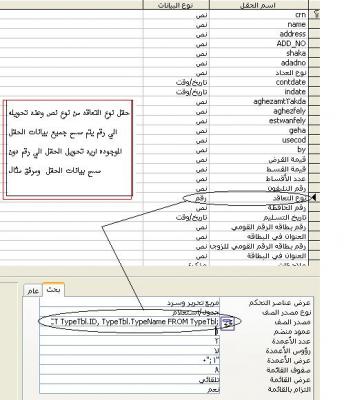 اسم الحقل نوع البيانات
crn نص
name نص
address نص
ADD_NO نص
shaka نص
adadno نص
نوع العداد نص
contdate تاريخ/وقت
indate تاريخ/وقت
aghezamtTakda نص
aghezfely نص
estwanfely نص
geha نص
usecod نص
by نص
قيمة القرض نص
قيمة القسط نص
عدد الأقساط نص
رقم التليفون نص
نوع التعاقد رقم
رقم الحافظة نص
تاريخ التسليم تاريخ/وقت
رقم بطاقه الرقم القومي نص
العنوان في البطاقه نص
رقم بطاقه القومي للزوجه نص
العنوان في البطاقة نص
حقل نوع التعاقد من نوع نص وعند تحويله
الي رقم يتم مسح جميع بيانات الحقل
الموجوده اريد تحويل الحقل الي رقم دون
مسح بيانات الحقل ومرفق مثال
عام بحث
عرض عناصر التحكم مربع تحرير وسرد
نوع مصدر الصف جدول/استعلام
مصدر الصف T TypeTbl.ID, TypeTbl.TypeName FROM TypeTbl;
عمود منضم ١
عدد الأعمدة ٢
رؤوس الأعمدة لا
عرض الأعمدة
صفوف القائمة ٨
عرض القائمة تلقائي
التزام بالقائمة نعم